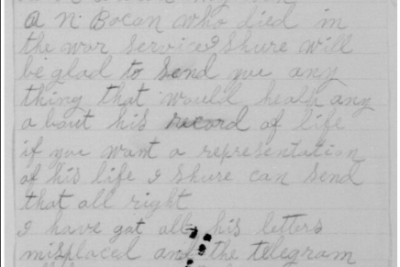 a N. Bocan who died in
the war service I shure will
be glad to send you any
thing that would healp any
a bout his record of life
if you want a representation
of his life I shure can send
that all right
I have got all his letters
misplacal and the telegram